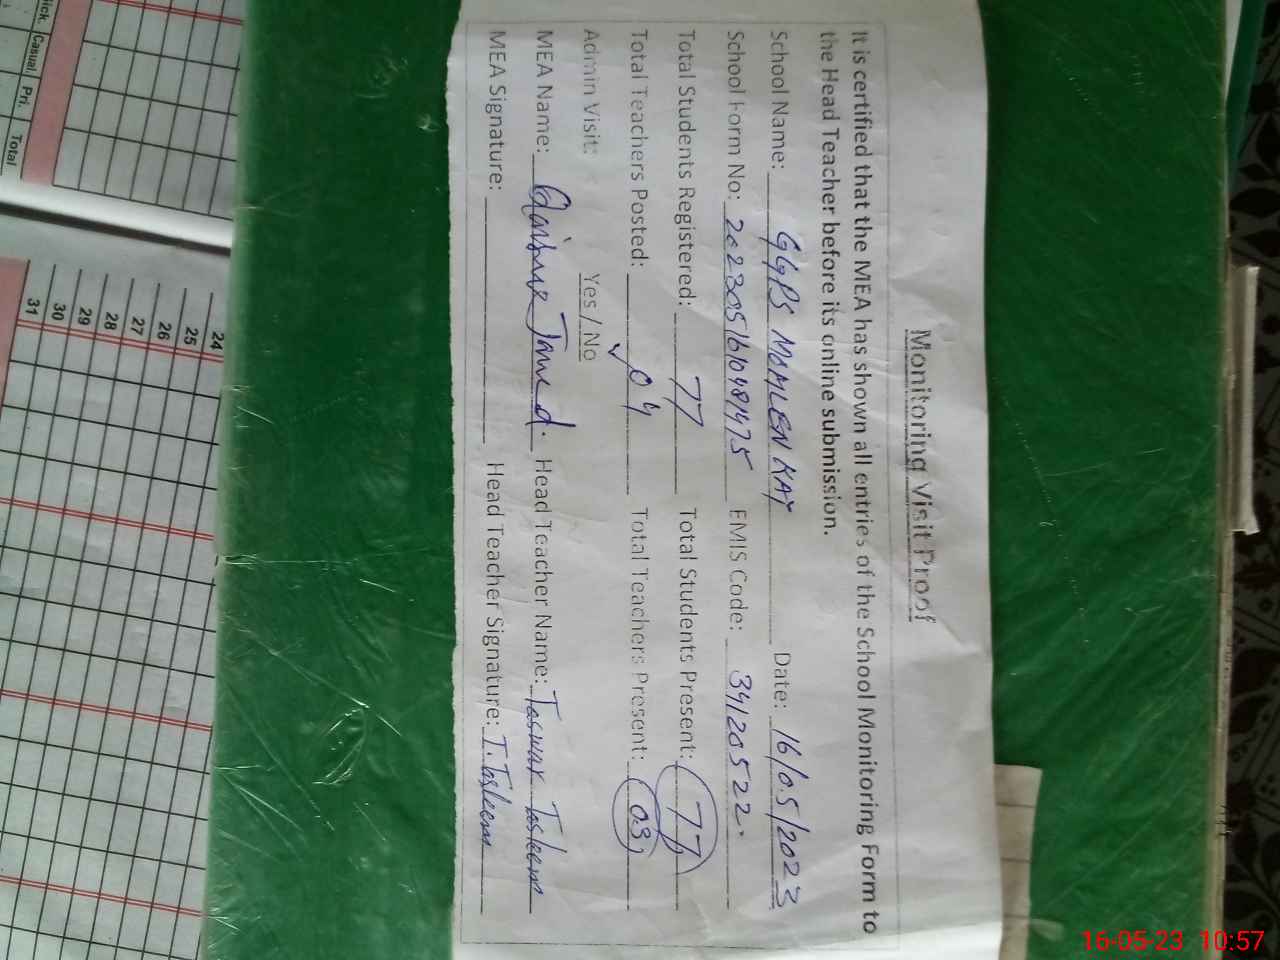 Monitoring Visit Proof
It is certified that the MEA has shown all entries of the School Monitoring Form to
the Head Teacher before its online submission.
School Name: GGPS MOMLEN KAY Date: 16/05/2023
School Form No: EMIS Code: 34120522.
Total Students Registered: 77 Total Students Present: 77
Total Teachers Posted: 04 Total Teachers Present: 03
Admin Visit: Yes / No
MEA Name: Head Teacher Name: Taswar Tasleem
MEA Signature: Head Teacher Signature: T. Tasleem
ick. Casual Pri. Total
24
25
26
27
28
29
30
31
16-05-23 10:57